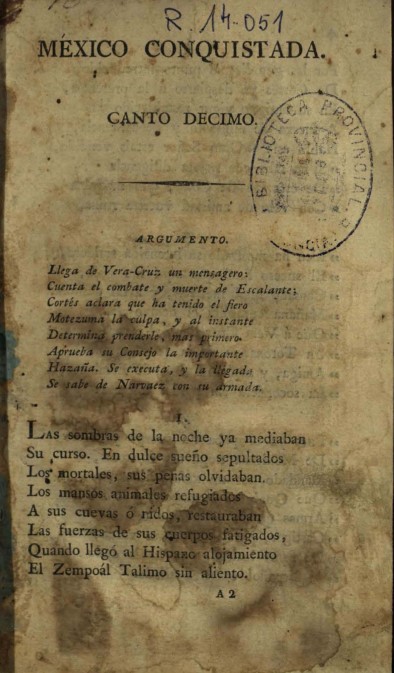 R. 14-051
MÉXICO CONQUISTADA.
CANTO DECIMO.
BIBLIOTECA PROVINCIAL
ARGUMENTO.
Llega de Vera-Cruz un mensagero:
Cuenta el combate y muerte de Escalante;
Cortés aclara que ha tenido el fiero
Motezuma la culpa, y al instante
Determina prenderle, mas primero
Aprueba su Consejo la importante
Hazaña. Se executa, y la llegada
Se sabe de Narvaez con su armada.
I.
LAS sombras de la noche ya mediaban
Su curso. En dulce sueño sepultados
Los mortales, sus penas olvidaban.
Los mansos animales refugiados
A sus cuevas ó nidos, restauraban
Las fuerzas de sus cuerpos fatigados,
Quando llegó al Hispano alojamiento
El Zempoál Talimo sin aliento.
A 2